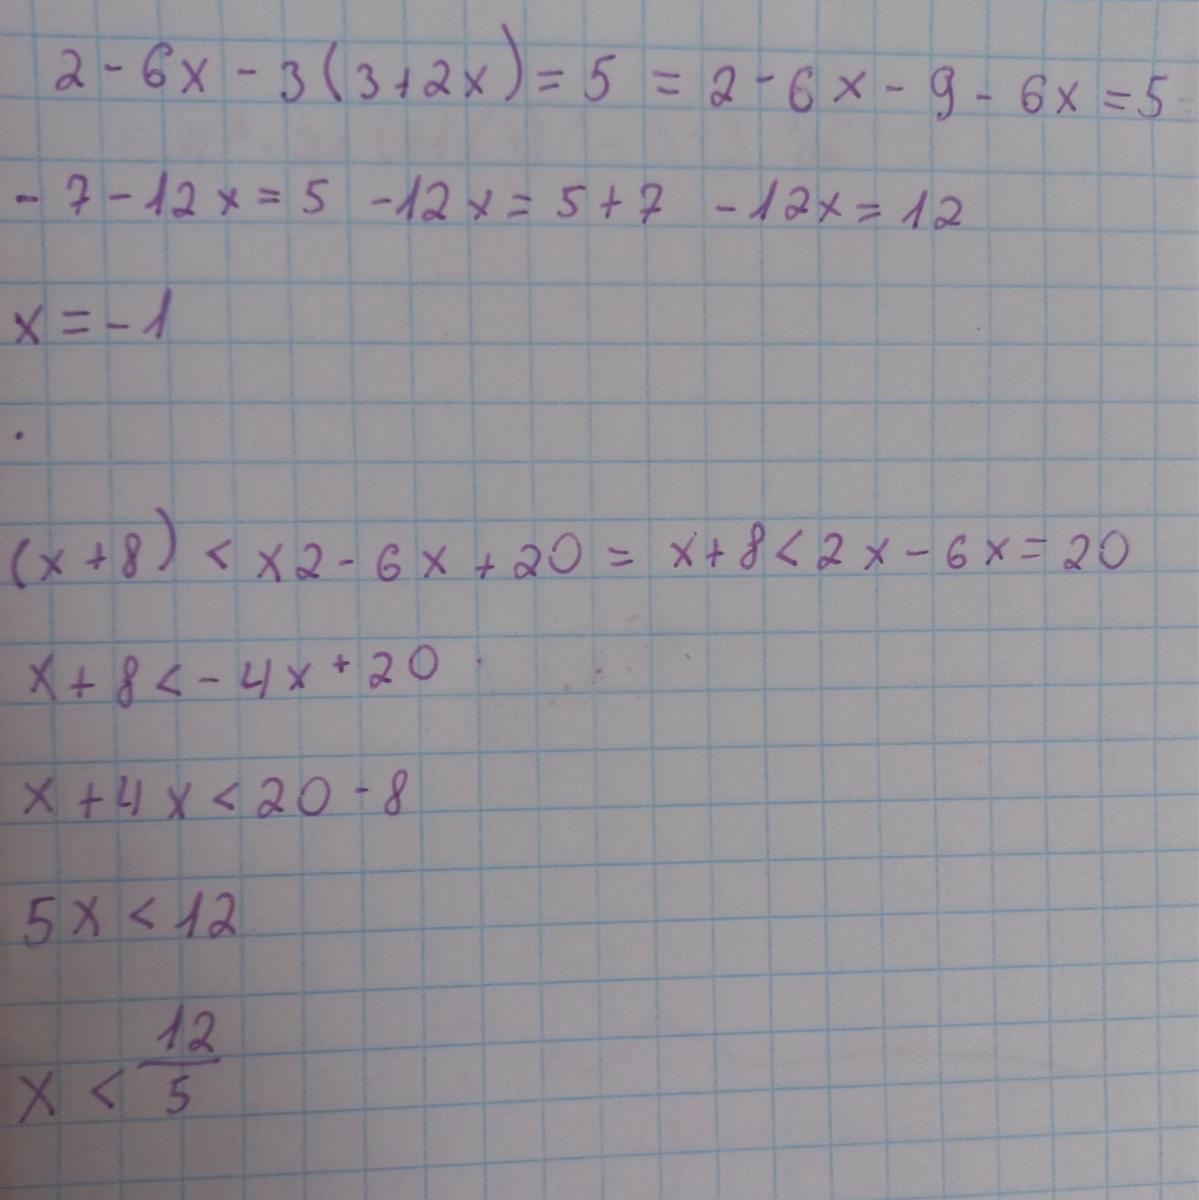 2 - 6x - 3(3+2x) = 5 = 2 - 6x - 9 - 6x = 5
- 7 - 12x = 5 -12x = 5+7 -12x = 12
x = -1
(x+8) < x2 - 6x + 20 = x+8 < 2x - 6x = 20
x + 8 < - 4x + 20
x + 4x < 20 - 8
5x < 12
x < 12/5